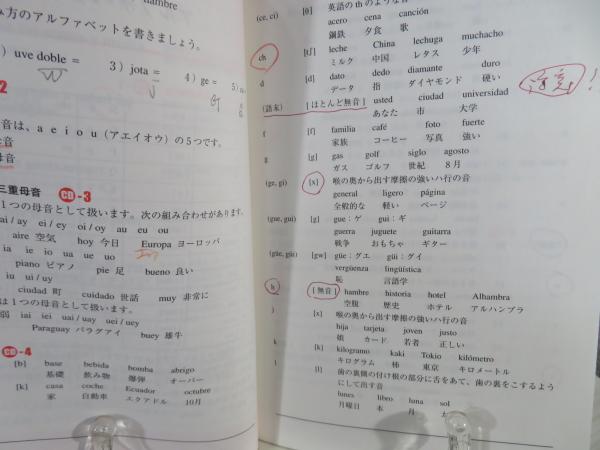 hambre
み方のアルファベットを書きましょう。
) uve doble =
3) jota =
4) ge =
5)
W
j
G
2
音は、a e i o u (アエイオウ) の5つです。
音
母音
三重母音 CD-3
1つの母音として扱います。次の組み合わせがあります。
ai / ay ei / ey oi / oy au eu ou
aire 空気 hoy 今日 Europa ヨーロッパ
ia ie io ua ue uo
piano ピアノ pie 足 bueno 良い
iu ui / uy
ciudad 町 cuidado 世話 muy 非常に
は1つの母音として扱います。
弱 iai iei uai / uay uei / uey
Paraguay パラグアイ buey 雄牛
CD-4
[b] base bebida bomba abrigo
基礎 飲み物 爆弾 オーバー
[k] casa coche Ecuador octubre
家 自動車 エクアドル 10月
(ce, ci) [θ] 英語の th のような音
acero cena canción
鋼鉄 夕食 歌
ch [tʃ] leche China lechuga muchacho
ミルク 中国 レタス 少年
d [d] dato dedo diamante duro
データ 指 ダイヤモンド 硬い
(語末) [ほとんど無音] usted ciudad universidad
あなた 市 大学
注意!
f [f] familia café foto fuerte
家族 コーヒー 写真 強い
g [g] gas golf siglo agosto
ガス ゴルフ 世紀 8月
(ge, gi) [x] 喉の奥から出す摩擦の強いハ行の音
general ligero página
全般的な 軽い ページ
(gue, gui) [g] gue:ゲ gui:ギ
guerra juguete guitarra
戦争 おもちゃ ギター
(güe, güi) [gw] güe:グエ güi:グイ
vergüenza lingüística
恥 言語学
h [無音] hambre historia hotel Alhambra
空腹 歴史 ホテル アルハンブラ
j [x] 喉の奥から出す摩擦の強いハ行の音
hija tarjeta joven justo
娘 カード 若者 正しい
k [k] kilogramo kaki Tokio kilómetro
キログラム 柿 東京 キロメートル
l [l] 歯の裏側の付け根の部分に舌をあて、歯の裏をこするよう
にして出す音
lunes libro luna sol
月曜日 本 月 太陽